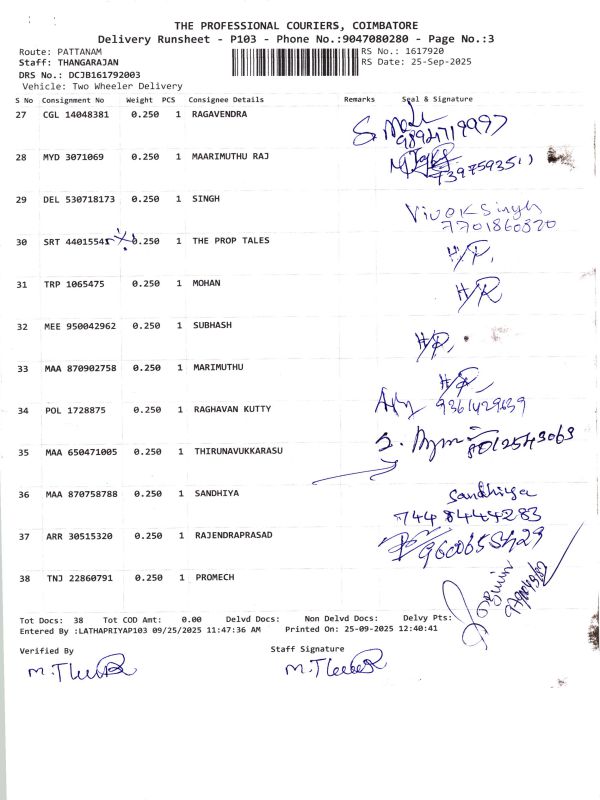 THE PROFESSIONAL COURIERS, COIMBATORE
Delivery Runsheet - P103 - Phone No.:9047080280 - Page No.:3
Route: PATTANAM RS No.: 1617920
Staff: THANGARAJAN RS Date: 25-Sep-2025
DRS No.: DCJB161792003
Vehicle: Two Wheeler Delivery
S No Consignment No Weight PCS Consignee Details Remarks Seal & Signature
27 CGL 14048381 0.250 1 RAGAVENDRA
9894719997
28 MYD 3071069 0.250 1 MAARIMUTHU RAJ
29 DEL 530718173 0.250 1 SINGH
Singh
7701860320
30 SRT 44015545 0.250 1 THE PROP TALES
H/R.
31 TRP 1065475 0.250 1 MOHAN
H/R
32 MEE 950042962 0.250 1 SUBHASH
H/R.
33 MAA 870902758 0.250 1 MARIMUTHU
H/R.
34 POL 1728875 0.250 1 RAGHAVAN KUTTY
9361429639
35 MAA 650471005 0.250 1 THIRUNAVUKKARASU
8012543063
36 MAA 870758788 0.250 1 SANDHIYA
Sandhiya
7448444283
37 ARR 30515320 0.250 1 RAJENDRAPRASAD
38 TNJ 22860791 0.250 1 PROMECH
Tot Docs: 38 Tot COD Amt: 0.00 Delvd Docs: Non Delvd Docs: Delvy Pts:
Entered By :LATHAPRIYAP103 09/25/2025 11:47:36 AM Printed On: 25-09-2025 12:40:41
Verified By Staff Signature